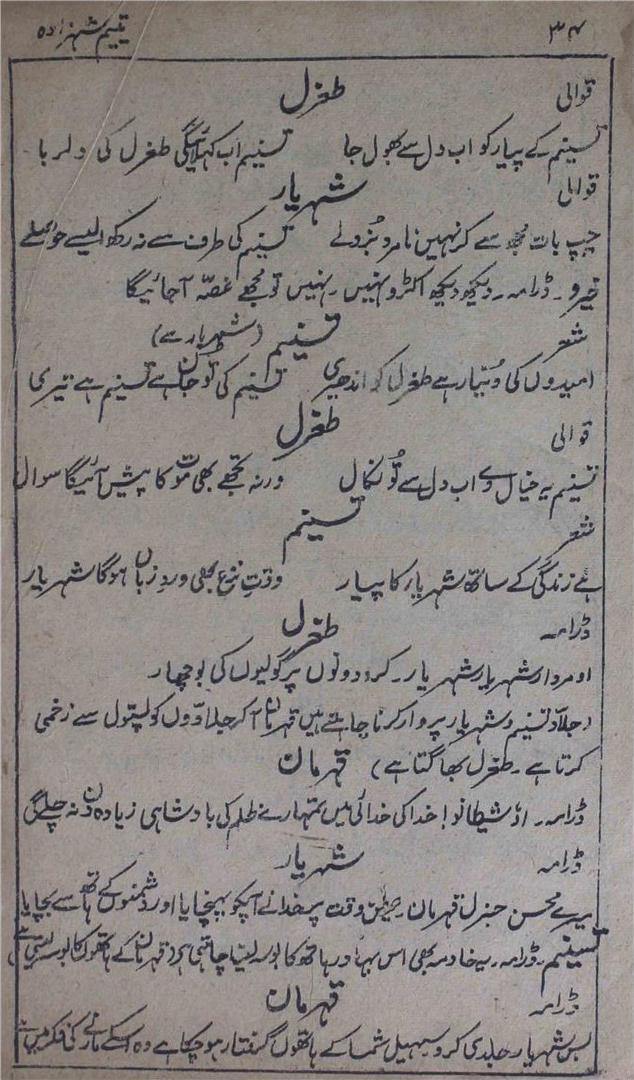 ۳۴ یتیم شہزادہ
قوالی طغرل
تسنیم کے پیار کو اب دل سے بھول جا تسنیم اب کہلائیگی طغرل کی دلربا
قوالی شہریار
چپ بات مجھ سے کر نہیں نامرد بُزدلے تسنیم کی طرف سے نہ رکھ ایسے حوصلے
خیرو۔ ڈرامہ۔ دیکھ دیکھ اکڑو نہیں۔ نہیں تو مجھے غصّہ آجائیگا
شعر تسنیم (شہریار سے)
امیدوں کی دُنیا ہے طغرل کو اندھیری تسنیم کی تو جان ہے تسنیم ہے تیری
قوالی طغرل
تسنیم یہ خیال اب دل سے تُو نکال ورنہ تجھے بھی موت کا پیش آئیگا سوال
شعر تسنیم
ہے زندگی کے ساتھ شہریار کا پیار وقتِ نزع بھی وردِ زباں ہوگا شہریار
ڈرامہ طغرل
او مردار شہریار شہریار۔ کردو دونوں پر گولیوں کی بوچھار
(جلاّد تسنیم و شہریار پر وار کرنا چاہتے ہیں قہرمان آکر جلادّوں کو پستول سے زخمی
کرتا ہے۔ طغرل بھاگتا ہے) قہرمان
ڈرامہ۔ او شیطانو! خدا کی خدائی میں تمہارے ظلم کی بادشاہی زیادہ دن نہ چلیگی
ڈرامہ شہریار
میرے محسن جنرل قہرمان۔ عین وقت پر خدا نے آپکو پہنچایا اور دشمنوں کے ہاتھ سے بچایا
تسنیم۔ ڈرامہ۔ یہ خادمہ بھی اس بہادر ہاتھ کا بوسہ لینا چاہتی ہے (قہرمان کے ہاتھوں کا بوسہ لیتی ہے)
ڈرامہ قہرمان
بس شہریار جلدی کرو سہیل شما کے ہاتھوں گرفتار ہو چکا ہے وہ اسکے مارنے کی فکر میں ہے